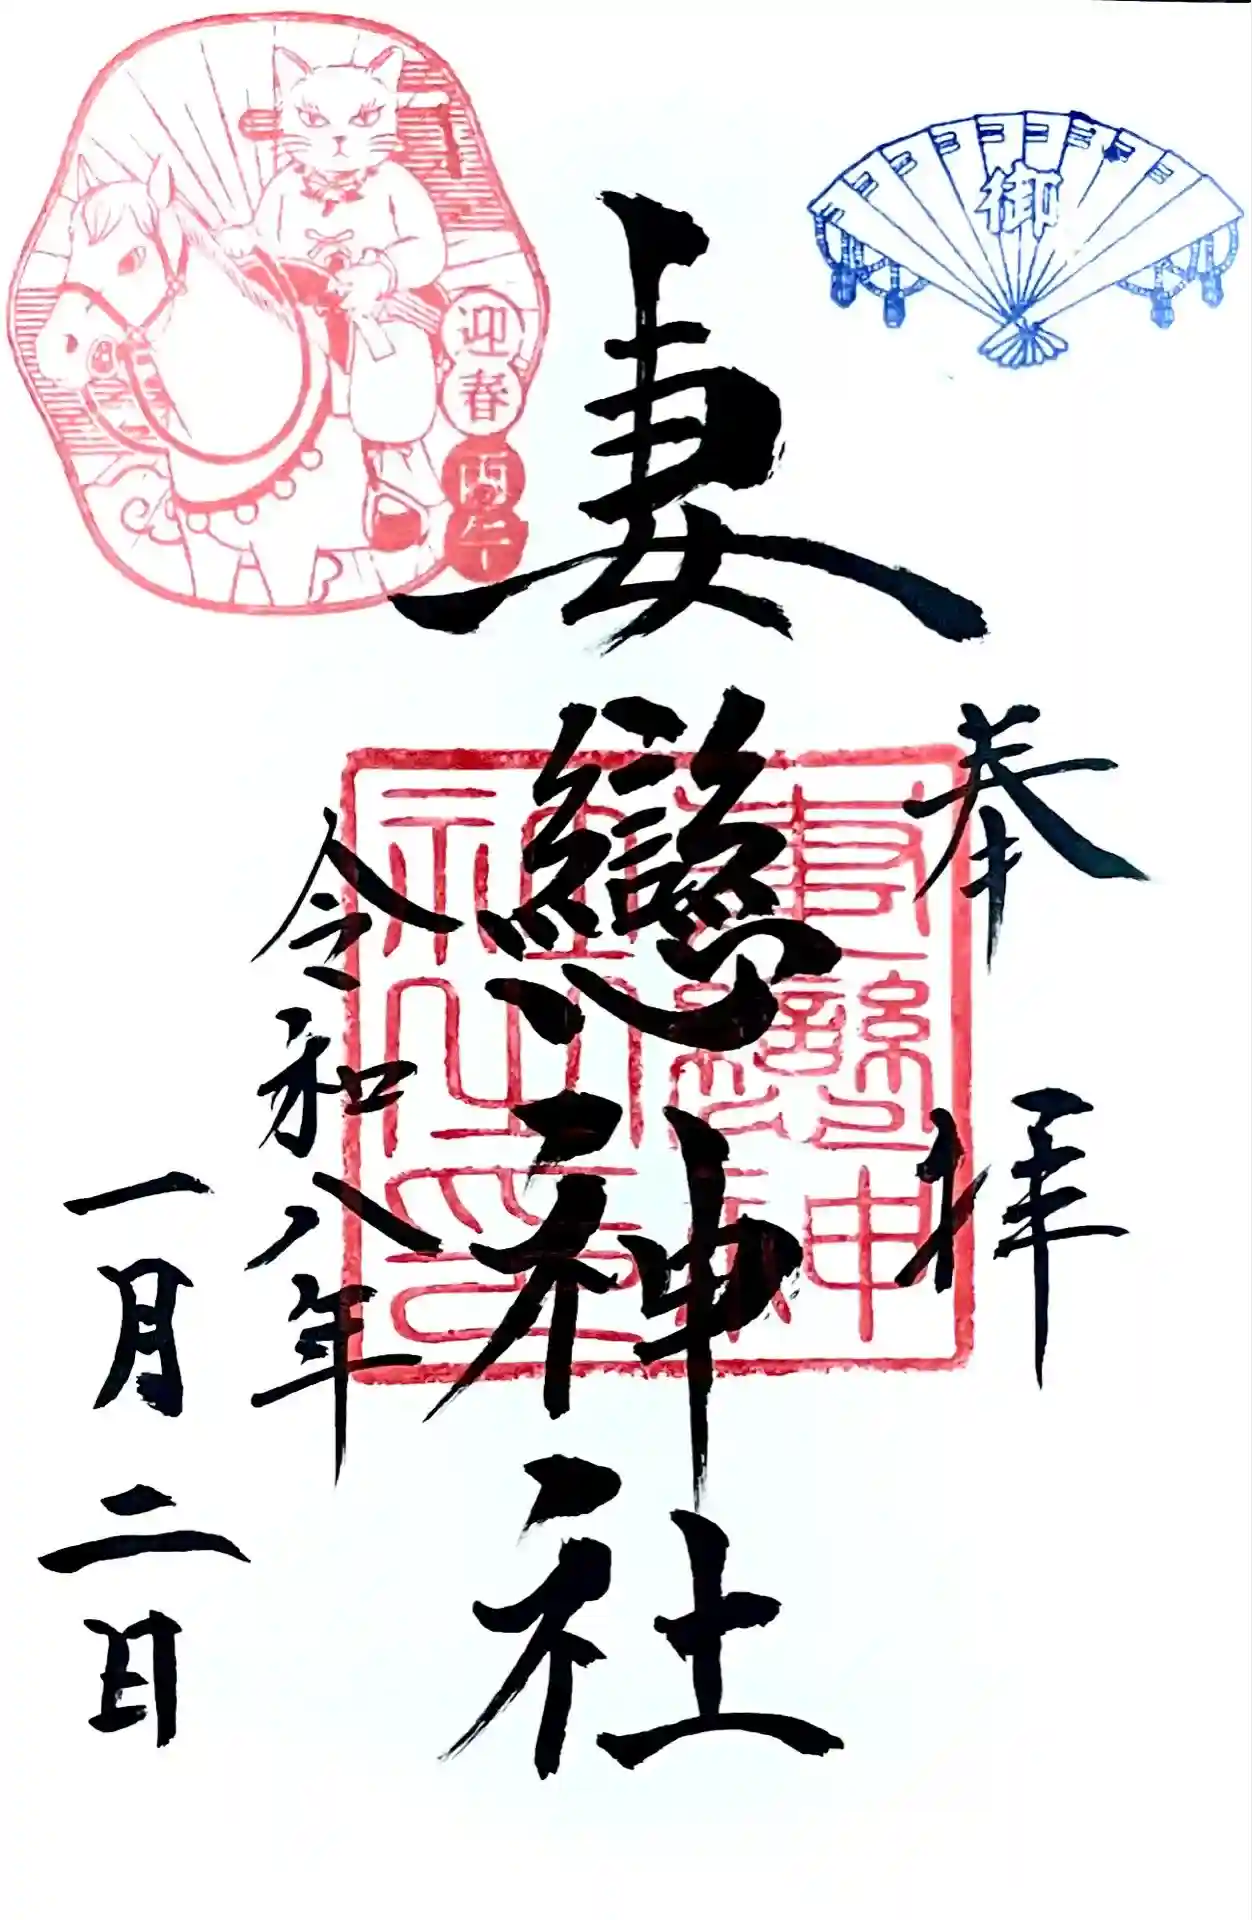 御
奉拝
妻戀神社
妻戀神
社之印
令和八年
一月二日
迎春
丙午